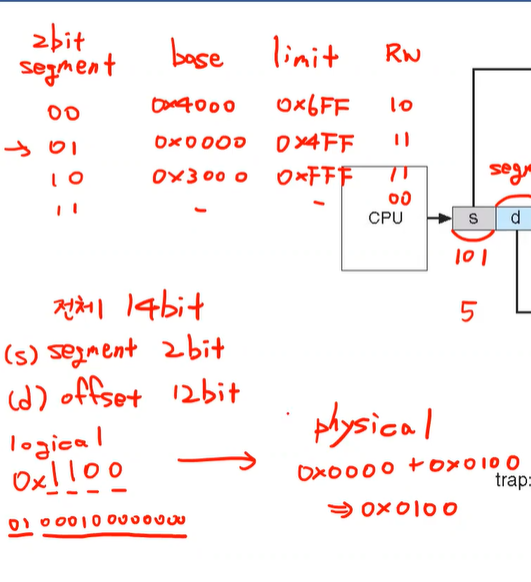 2bit segment base limit RW
00 0x4000 0x6FF 10
→ 01 0x0000 0x4FF 11
10 0x3000 0xFFF 11
11 - - 00
CPU s d
101
5
전체 14bit
(s) segment 2bit
(d) offset 12bit
logical
0x1100
01 000100000000
→ physical
0x0000 + 0x0100
trap:
⇒ 0x0100